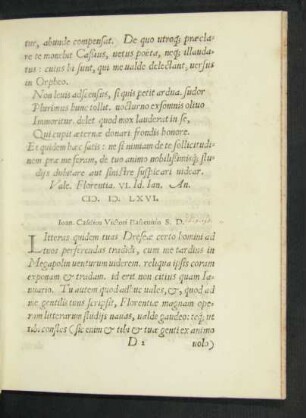 tur, abunde compensat. De quo utroq; præcla-
re te monebit Cassius, uetus poeta, neq; illauda-
tus: cuius hi sunt, qui me ualde delectant, uersus
in Orpheo.
Non leuis adscensus, si quis petit ardua. sudor
Plurimus hunc tollit. nocturno exsomnis oliuo
Immoritur. delet quod mox lauderat in se,
Qui cupit æternæ donari frondis honore.
Et quidem hæc satis: ne si nimiam de te sollicitudi-
nem præ me feram, de tuo animo nobilissimisq; stu-
dijs dubitare aut sinistre suspicari uidear.
Vale. Florentia. VI. Id. Ian. An.
CIↃ. IↃ. LXVI.
Ioan. Caselius Victori S. D.
Litteras quidem tuas Dresdæ certo homini ad
tuos perferendas tradidi, cum me tardius in
Megapolin uenturum uiderem. reliqua ipsis coram
exponam & tradam. id erit non citius quam Ia-
nuario. Tu autem quod ad huc uales, &, quod ad
me gentilis tuus scripsit, Florentiæ magnam ope-
ram litterarum studijs nauas, ualde gaudeo: teq; ut
tibi constes (sic enim & tibi & tuæ genti ex animo
D 2 uolo)